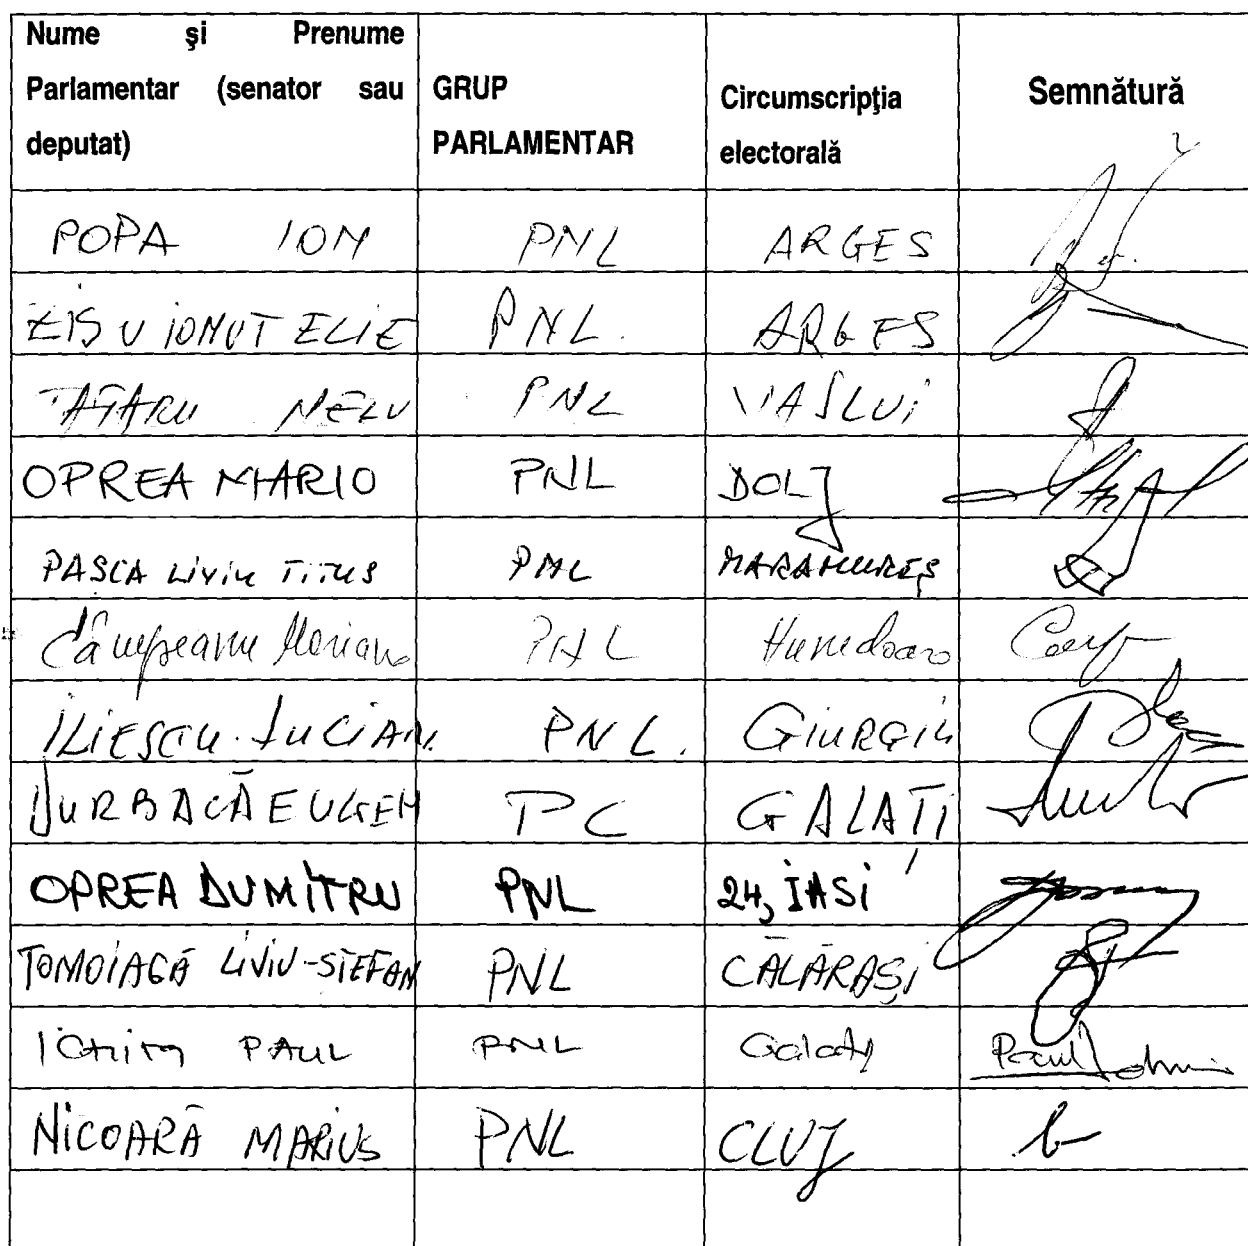 Nume şi Prenume
Parlamentar (senator sau
deputat)
GRUP
PARLAMENTAR
Circumscripţia
electorală
Semnătură
POPA ION PNL ARGES
ZISU IONUT ELIE PNL. ARGES
TĂTARU NELU PNL VASLUi
OPREA MARIO PNL DOLJ
PASCA LiViu TiTUS PNL MARAMUREŞ
Câmpeanu Mariana PNL Hunedoara
ILIESCU LUCIAN PNL. GIURGIU
DURBACĂ EUGEN PC GALATI
OPREA DUMITRU PNL 24, IASI
TOMOIAGĂ LIVIU-STEFAN PNL CĂLĂRAŞI
ICHIM PAUL PNL Galati Paul Ichim
NICOARĂ MARIUS PNL CLUJ